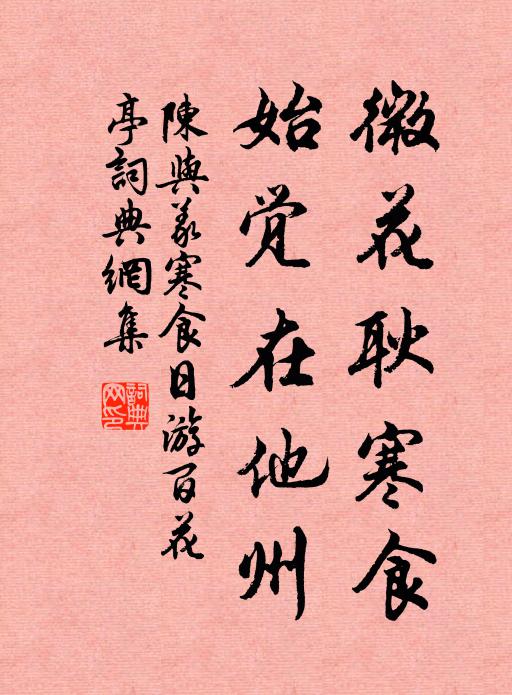 微花耿寒食
始觉在他州
陳與義寒食日游百花
亭詞典網集
詞典
网印